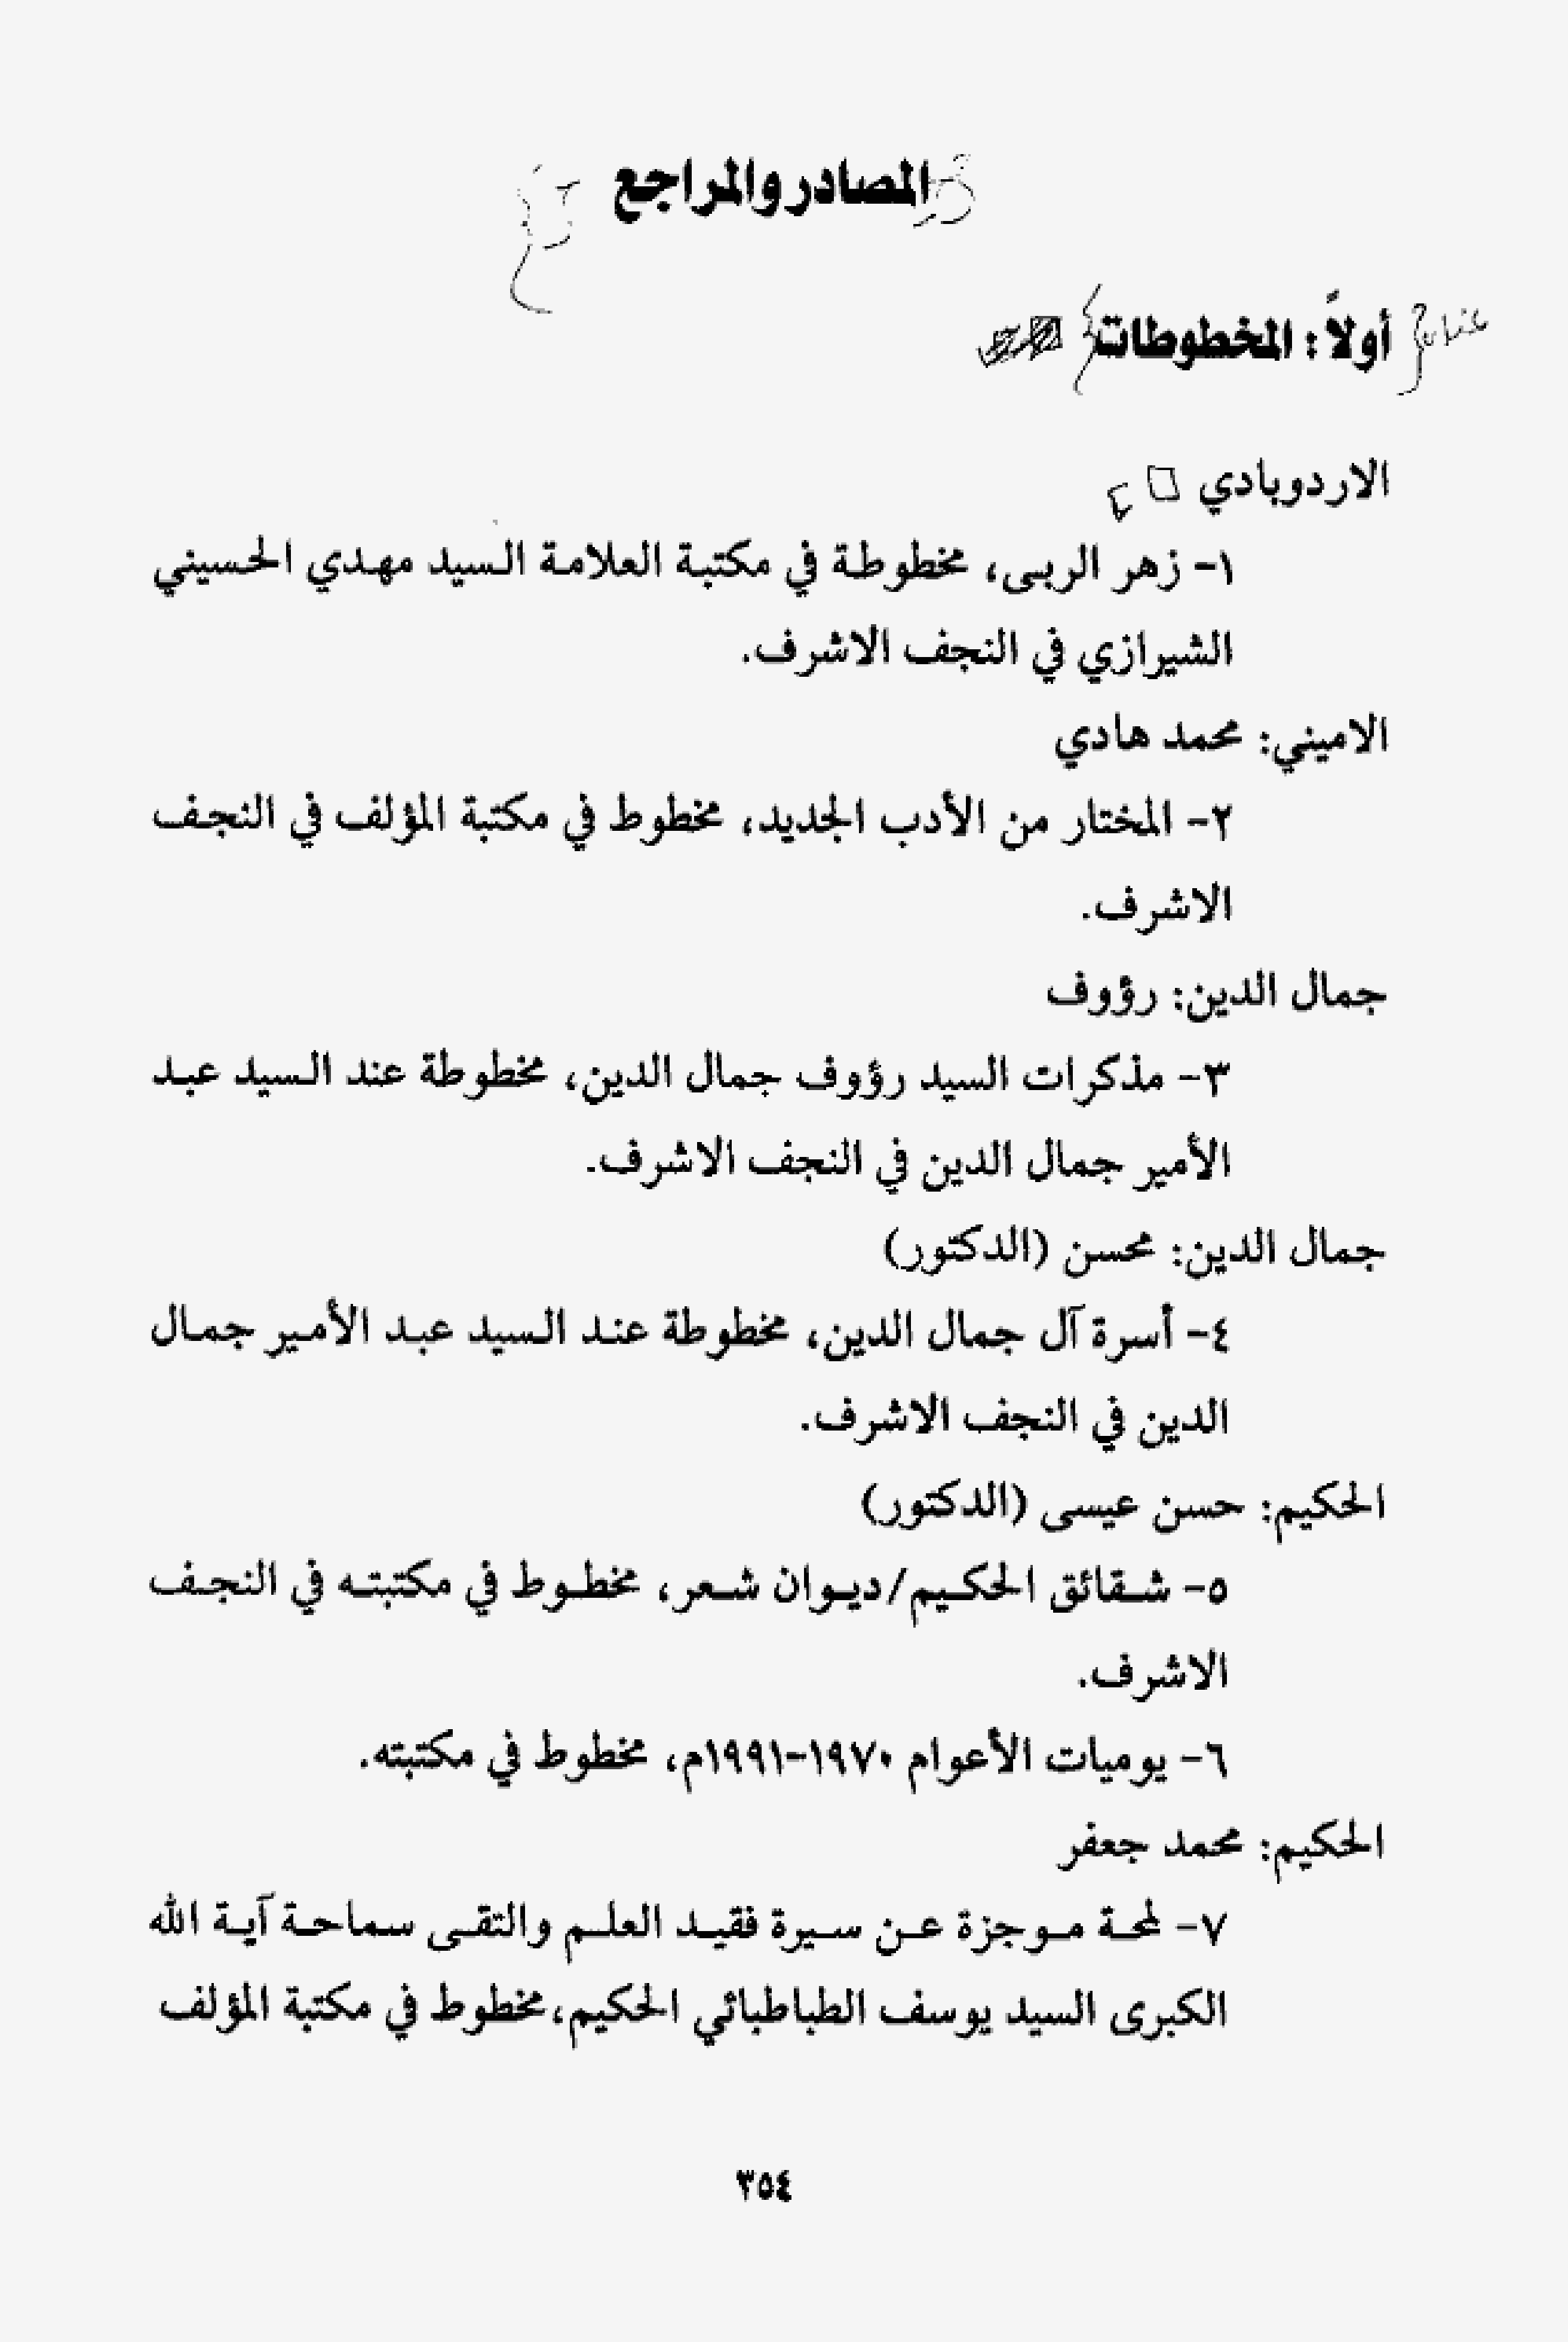 المصادر والمراجع
أولاً : المخطوطات
الاردوبادي
١- زهر الربى، مخطوطة في مكتبة العلامة السيد مهدي الحسيني
الشيرازي في النجف الاشرف.
الاميني: محمد هادي
٢- المختار من الأدب الجديد، مخطوط في مكتبة المؤلف في النجف
الاشرف.
جمال الدين: رؤوف
٣- مذكرات السيد رؤوف جمال الدين، مخطوطة عند السيد عبد
الأمير جمال الدين في النجف الاشرف.
جمال الدين: محسن (الدكتور)
٤- أسرة آل جمال الدين، مخطوطة عند السيد عبد الأمير جمال
الدين في النجف الاشرف.
الحكيم: حسن عيسى (الدكتور)
٥- شقائق الحكيم/ديوان شعر، مخطوط في مكتبته في النجف
الاشرف.
٦- يوميات الأعوام ١٩٧٠-١٩٩١م، مخطوط في مكتبته.
الحكيم: محمد جعفر
٧- لمحة موجزة عن سيرة فقيد العلم والتقى سماحة آية الله
الكبرى السيد يوسف الطباطبائي الحكيم،مخطوط في مكتبة المؤلف
٣٥٤